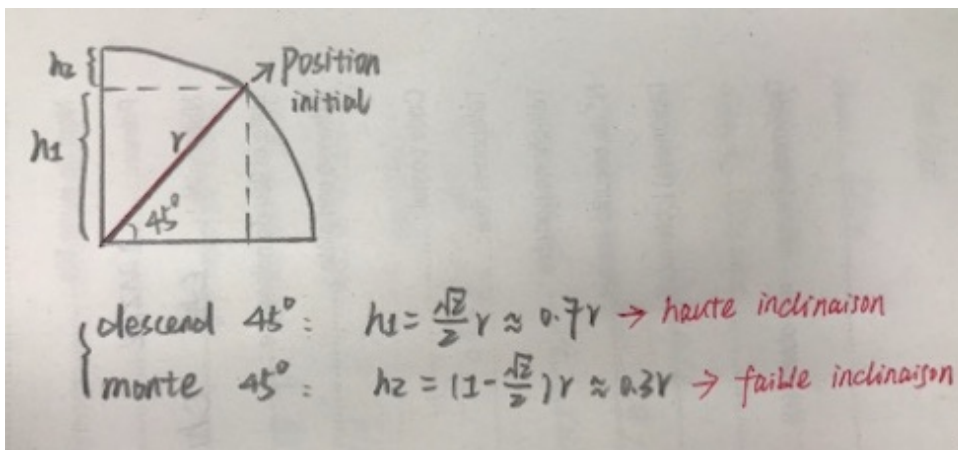 h2
Position
initial
h1
r
45°
descend 45° : h1 = √2/2 r ≈ 0.7r → haute inclinaison
monte 45° : h2 = (1-√2/2)r ≈ 0.3r → faible inclinaison